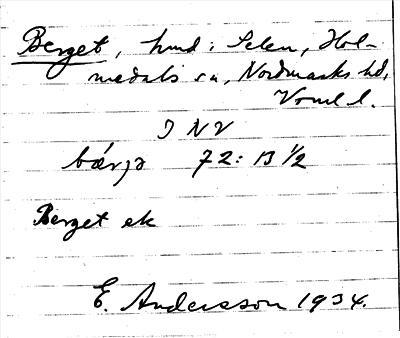 Berget, hmd i Selen, Hol-
medals sn, Nordmarks hd,
Vrml l.
I N V
bærjə 72: 13 1/2
Berget ek
E. Andersson 1934.